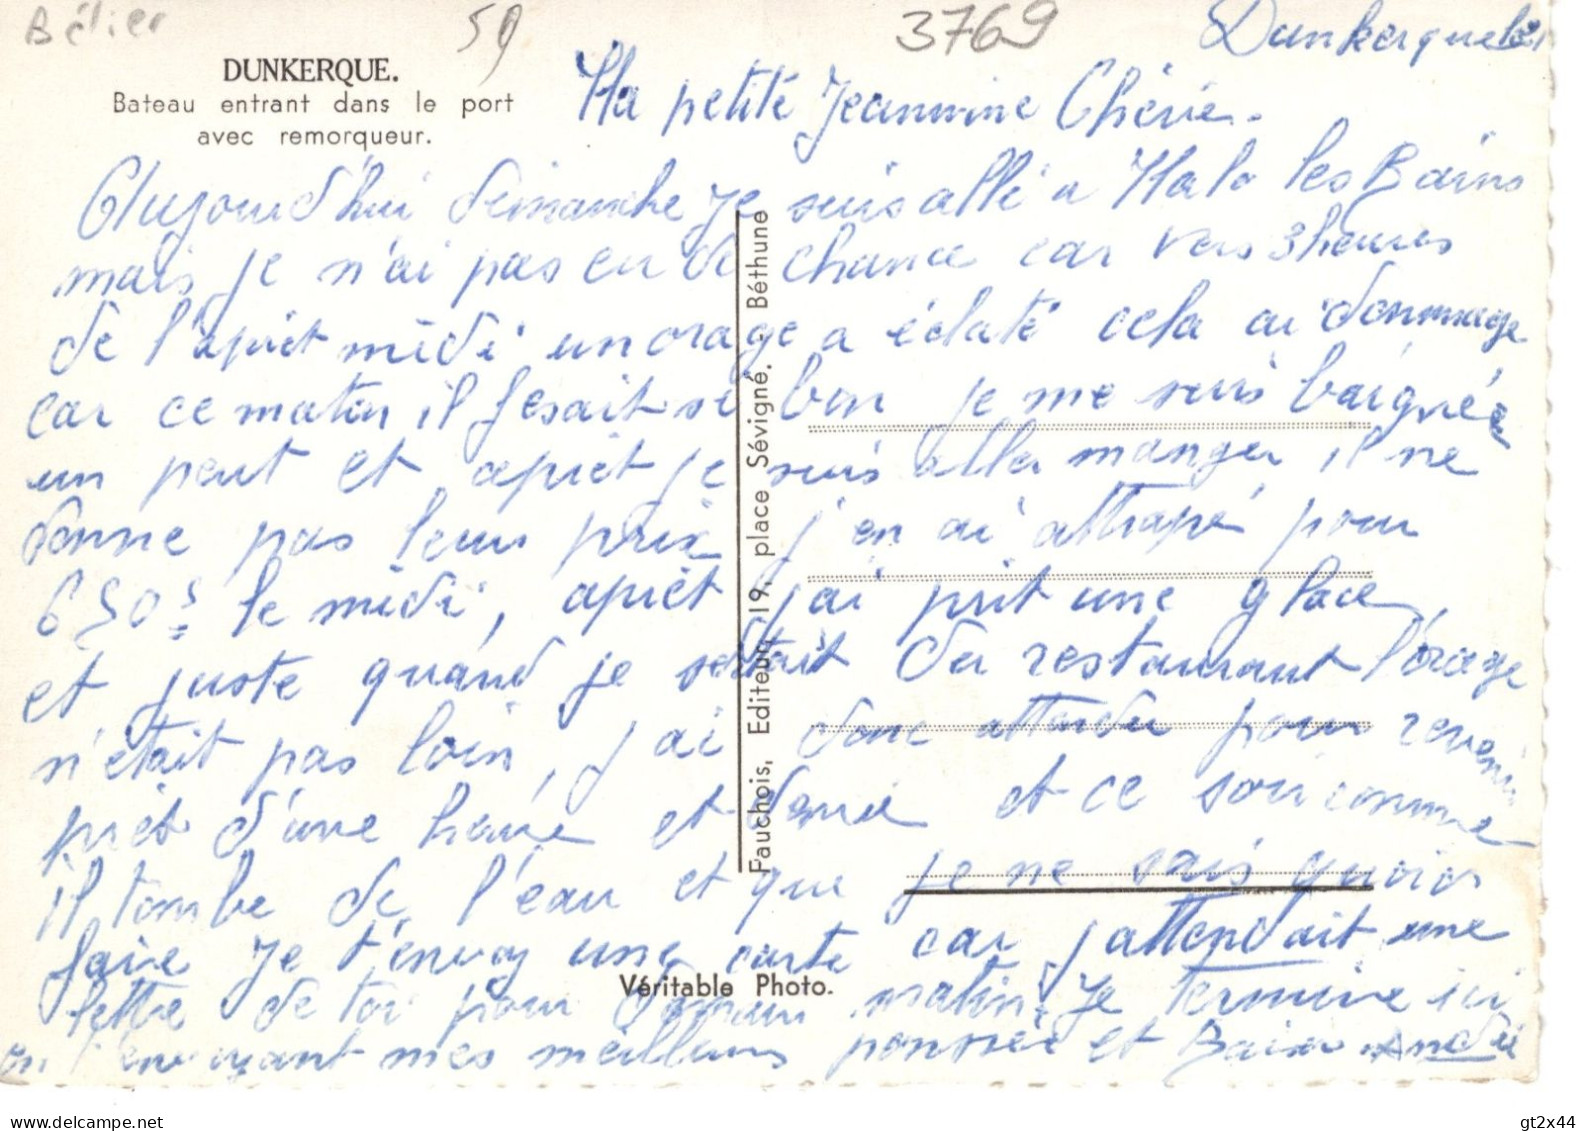 Bélier
59
3769
Dunkerque le
DUNKERQUE.
Bateau entrant dans le port
avec remorqueur.
Ma petite Jeannine Chérie.
Aujourd'hui dimanche je suis allé a Malo les Bains
mais je n'ai pas eu de chance car vers 3 heures
de l'apret midi un orage a éclaté cela ai dommage
car ce matin il fesait si bon je me suis baignée
un peut et apret je suis aller manger, il ne
donne pas leur prix j'en ai attrapé pour
650 s le midi, apret j'ai prit une glace,
et juste quand je sortait du restaurant l'orage
n'était pas loin, j'ai donc attendu pour revenir
prêt d'une heure et demie et ce soir comme
il tombe de l'eau et que je ne sais quoi
faire je t'envoy une carte car j'attendait une
lettre de toi pour demain matin. Je termine ici
en t'envoyant mes meilleurs pensée et Baiser André
Fauchois, Editeur, 19, place Sévigné. Béthune
Véritable Photo.
www.delcampe.net
gt2x44